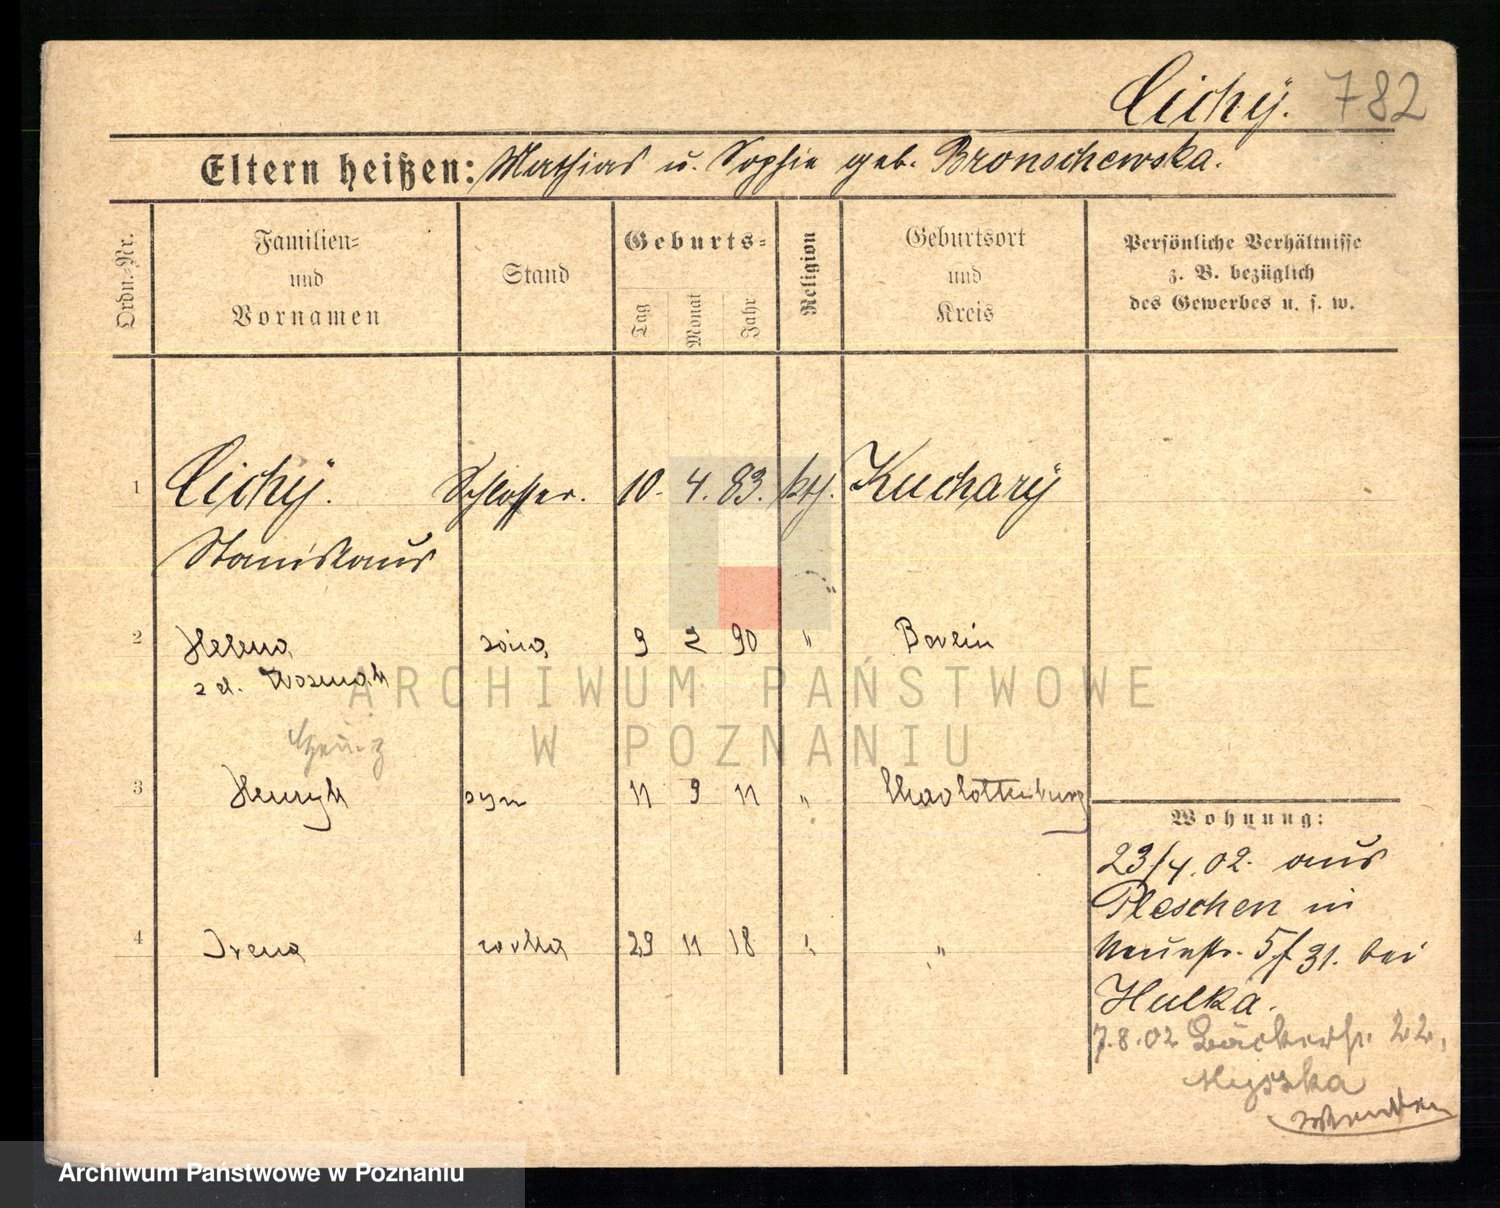 Cichÿ. 782
Eltern heißen: Mathias u. Sophie geb. Bronschewska.
Ordn.-Nr.
Familien- und Vornamen
Stand
Geburts-
Tag
Monat
Jahr
Religion
Geburtsort und Kreis
Persönliche Verhältnisse
z. B. bezüglich
des Gewerbes u. s. w.
1 Cichÿ. Schlosser. 10. 4. 83. kth. Kucharÿ
Stanislaus
2 Helena żona 9 2 90 " Berlin
z d. Wozniak
3 Henryk syn 11 9 11 " Charlottenburg
4 Irena córka 29 11 18 " "
Wohnung:
23/4.02. aus
Pleschen in
Neuestr. 5/31. bei
Hulka.
7.8.02 Bäckerstr. 22,
Myszka
ARCHIWUM PAŃSTWOWE
W POZNANIU
Archiwum Państwowe w Poznaniu